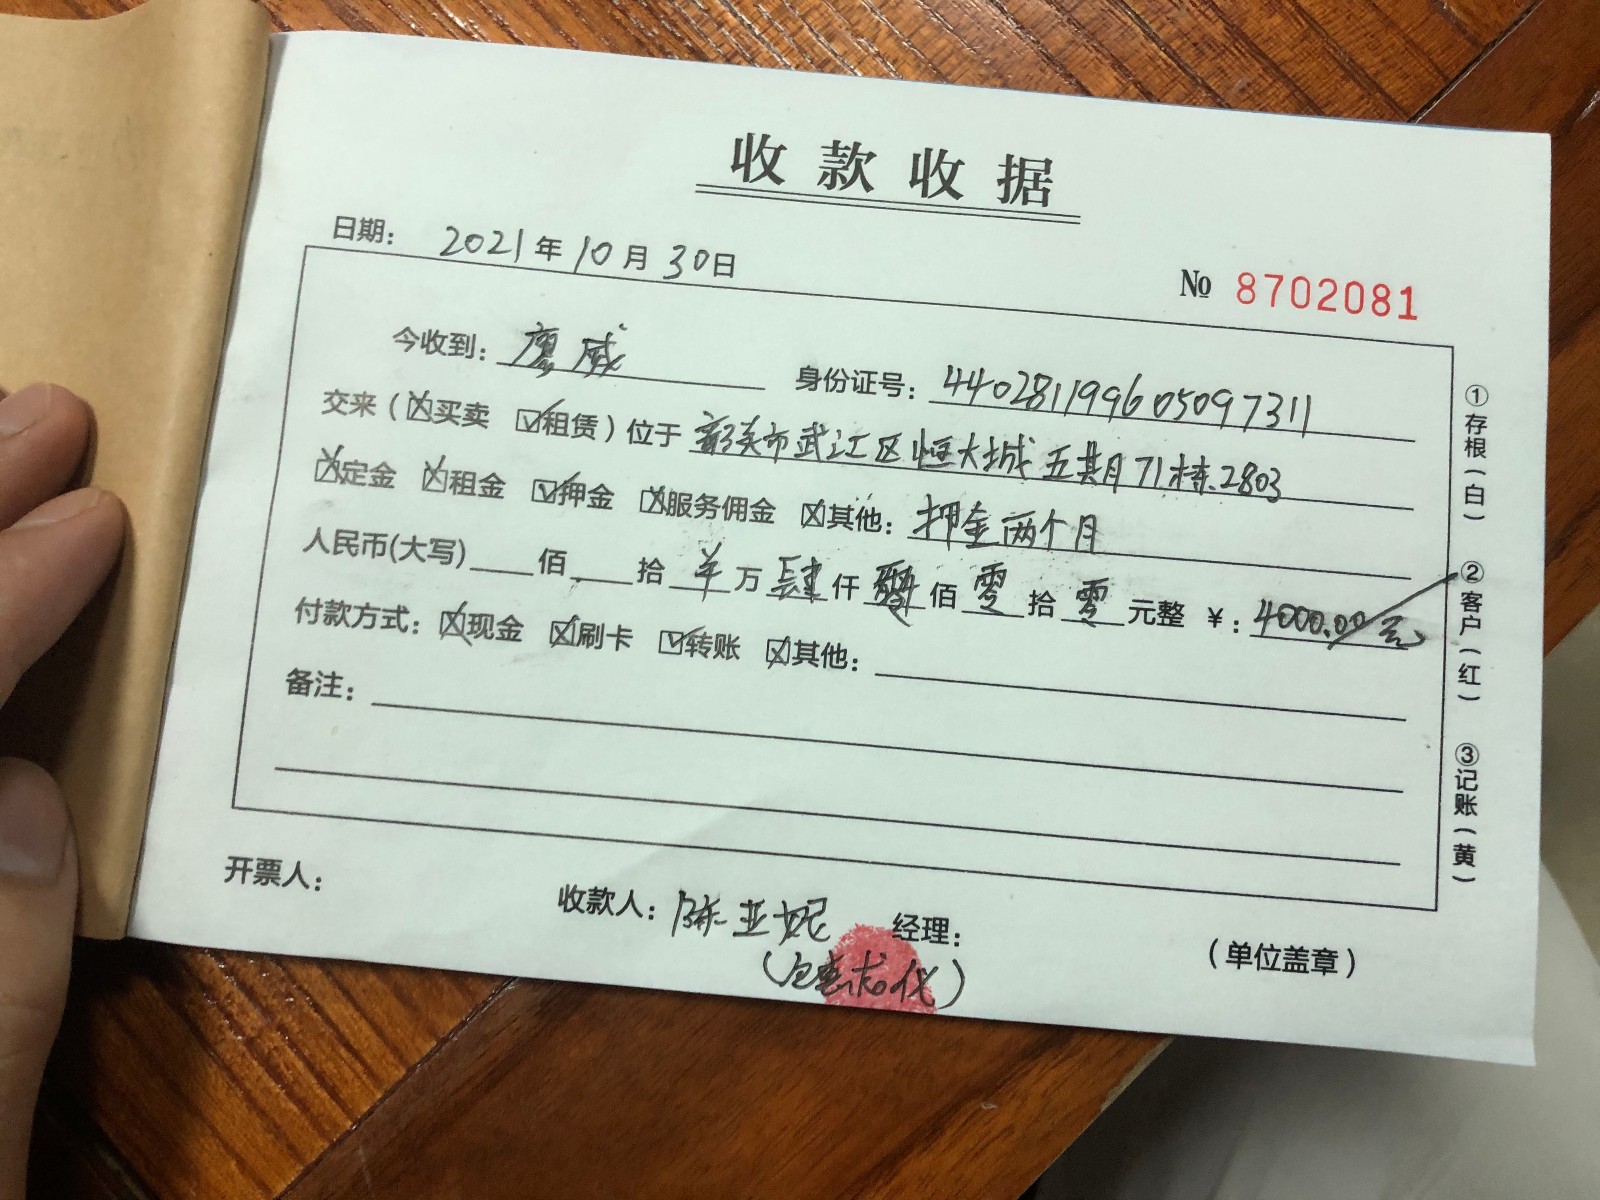 收款收据
日期： 2021年10月30日
№ 8702081
今收到：廖威 身份证号：440281199605097311
交来（☒买卖 ☑租赁）位于 韶关市武江区恒大城五期71栋.2803
☒定金 ☒租金 ☑押金 ☒服务佣金 ☒其他：押金两个月
人民币(大写) 佰 拾 羊 万 肆 仟 零 佰 零 拾 零 元整 ¥：4000.00元
付款方式：☒现金 ☒刷卡 ☑转账 ☒其他：
备注：
开票人： 收款人：陈亚妮 经理： （单位盖章）
①存根（白） ②客户（红） ③记账（黄）